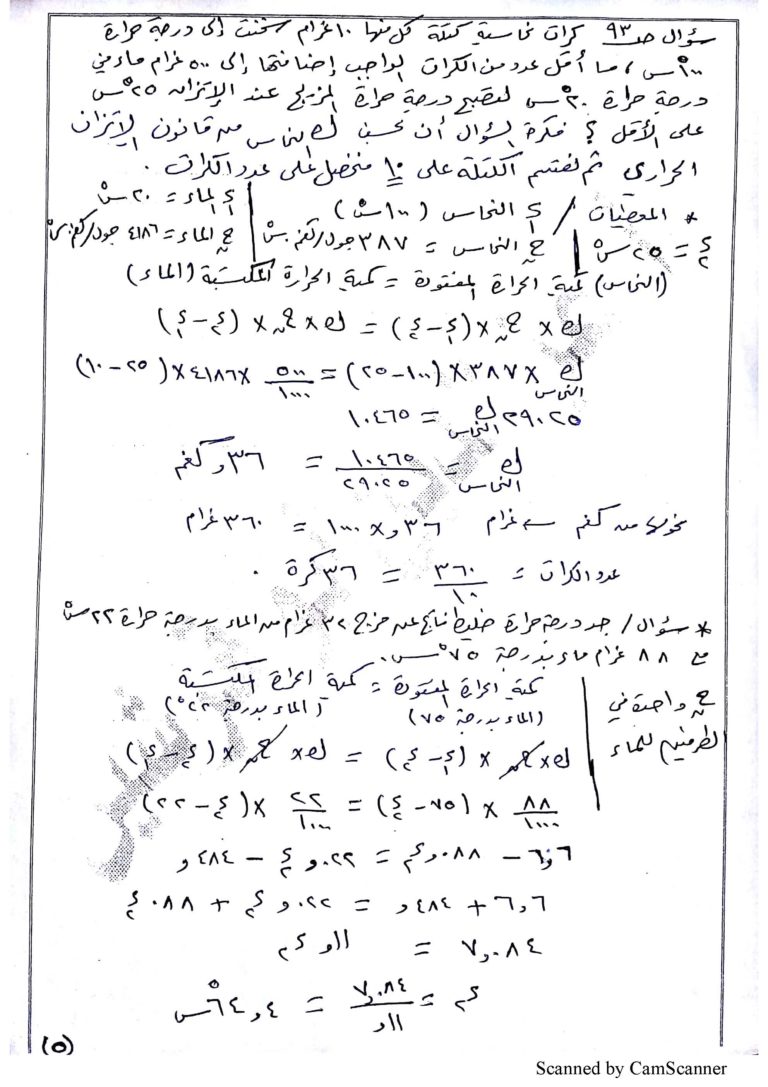 سؤال صـ ٩٣ كرات نحاسية كتلة كل منها ١٠ غرام سخنت إلى درجة حرارة
١٠٠°س ، ما أقل عدد من الكرات الواجب إضافتها إلى ٥٠٠ غرام ماء في
درجة حرارة ٢٠°س لتصبح درجة حرارة المزيج عند الإتزان ٢٥°س
على الأقل ؟ فكرة السؤال أن نحسب ك النحاس من قانون الإتزان
الحراري ثم نقسم الكتلة على ١٠ فنحصل على عدد الكرات .
* المعطيات / د١ النحاس (١٠٠°س) | د١ الماء = ٢٠°س
د٢ = ٢٥°س | حن النحاس = ٣٨٧ جول/كغم.س° | حن الماء = ٤١٨٦ جول/كغم.س°
(النحاس) كمية الحرارة المفقودة = كمية الحرارة المكتسبة (الماء)
ك × حن × (د١ - د٢) = ك × حن × (د٢ - د١)
ك النحاس × ٣٨٧ × (١٠٠ - ٢٥) = ٥٠٠/١٠٠٠ × ٤١٨٦ × (٢٥ - ١٠)
٢٩٠٢٥ ك النحاس = ١٠٤٦٥
ك النحاس = ١٠٤٦٥/٢٩٠٢٥ = ٣٦و كغم
نحولها من كغم ← غرام ٣٦و × ١٠٠٠ = ٣٦٠ غرام
عدد الكرات = ٣٦٠/١٠ = ٣٦ كرة .
* سؤال / جد درجة حرارة خليط ناتج عن مزيج ٣٢ غرام من الماء بدرجة حرارة ٢٢°س
مع ٨٨ غرام ماء بدرجة ٧٥°س.
كمية الحرارة المفقودة = كمية الحرارة المكتسبة
(الماء بدرجة ٧٥) (الماء بدرجة ٢٢°)
حن واحدة في
الطرفين للماء
ك × حن × (د١ - د٢) = ك × حن × (د٢ - د١)
٨٨/١٠٠٠ × (٧٥ - د٢) = ٢٢/١٠٠٠ × (د٢ - ٢٢)
٦,٦ - ٠٨٨و د٢ = ٠٢٢و د٢ - ٤٨٤و
٦,٦ + ٤٨٤و = ٠٢٢و د٢ + ٠٨٨ د٢
٧,٠٨٤ = ١١و د٢
د٢ = ٧,٠٨٤/١١و = ٦٤,٤°س
(٥)
Scanned by CamScanner